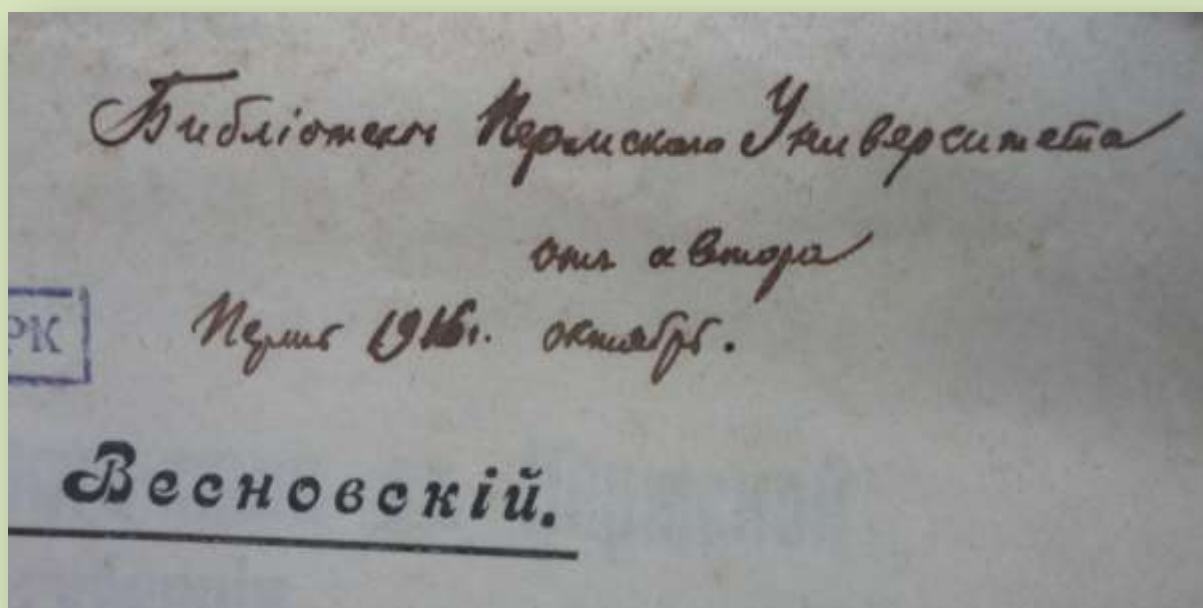 Библіотекѣ Пермскаго Университета
отъ автора
Пермь 1916 г. октябрь.
РК
Весновскій.